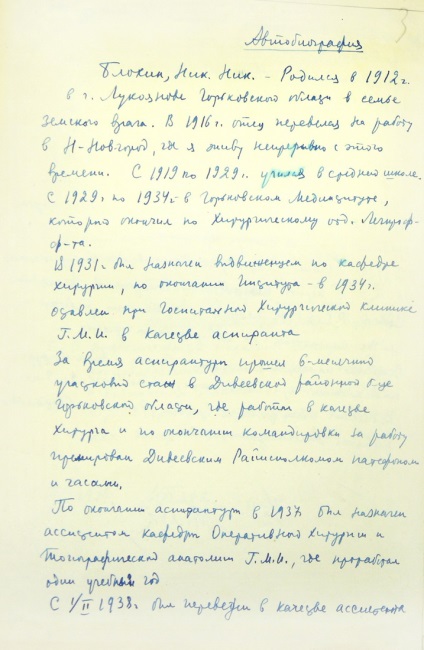 3
Автобиография
Блохин, Ник. Ник. - Родился в 1912 г.
в г. Лукоянове Горьковской области в семье
земского врача. В 1916 г. отец перевелся на работу
в Н-Новгород, где я живу непрерывно с этого
времени. С 1919 по 1929 г. учился в средней школе.
С 1929 г. по 1934 г. - в Горьковском Мединституте,
который окончил по Хирургическому отд. Лечпроф-
ф-та.
В 1931 г. был назначен выдвиженцем по кафедре
хирургии, по окончании Института - в 1934 г.
оставлен при Госпитальной Хирургической клинике
Г.М.И. в качестве аспиранта
За время аспирантуры прошел 6-месячный
участковый стаж в Дивеевской районной б-це
Горьковской области, где работал в качестве
хирурга и по окончании командировки за работу
премирован Дивеевским Райисполкомом патефоном
и часами.
По окончании аспирантуры в 1937 был назначен
ассистентом кафедры Оперативной Хирургии и
Топографической анатомии Г.М.И., где проработал
один учебный год
С 1/II 1938 г. был переведен в качестве ассистента